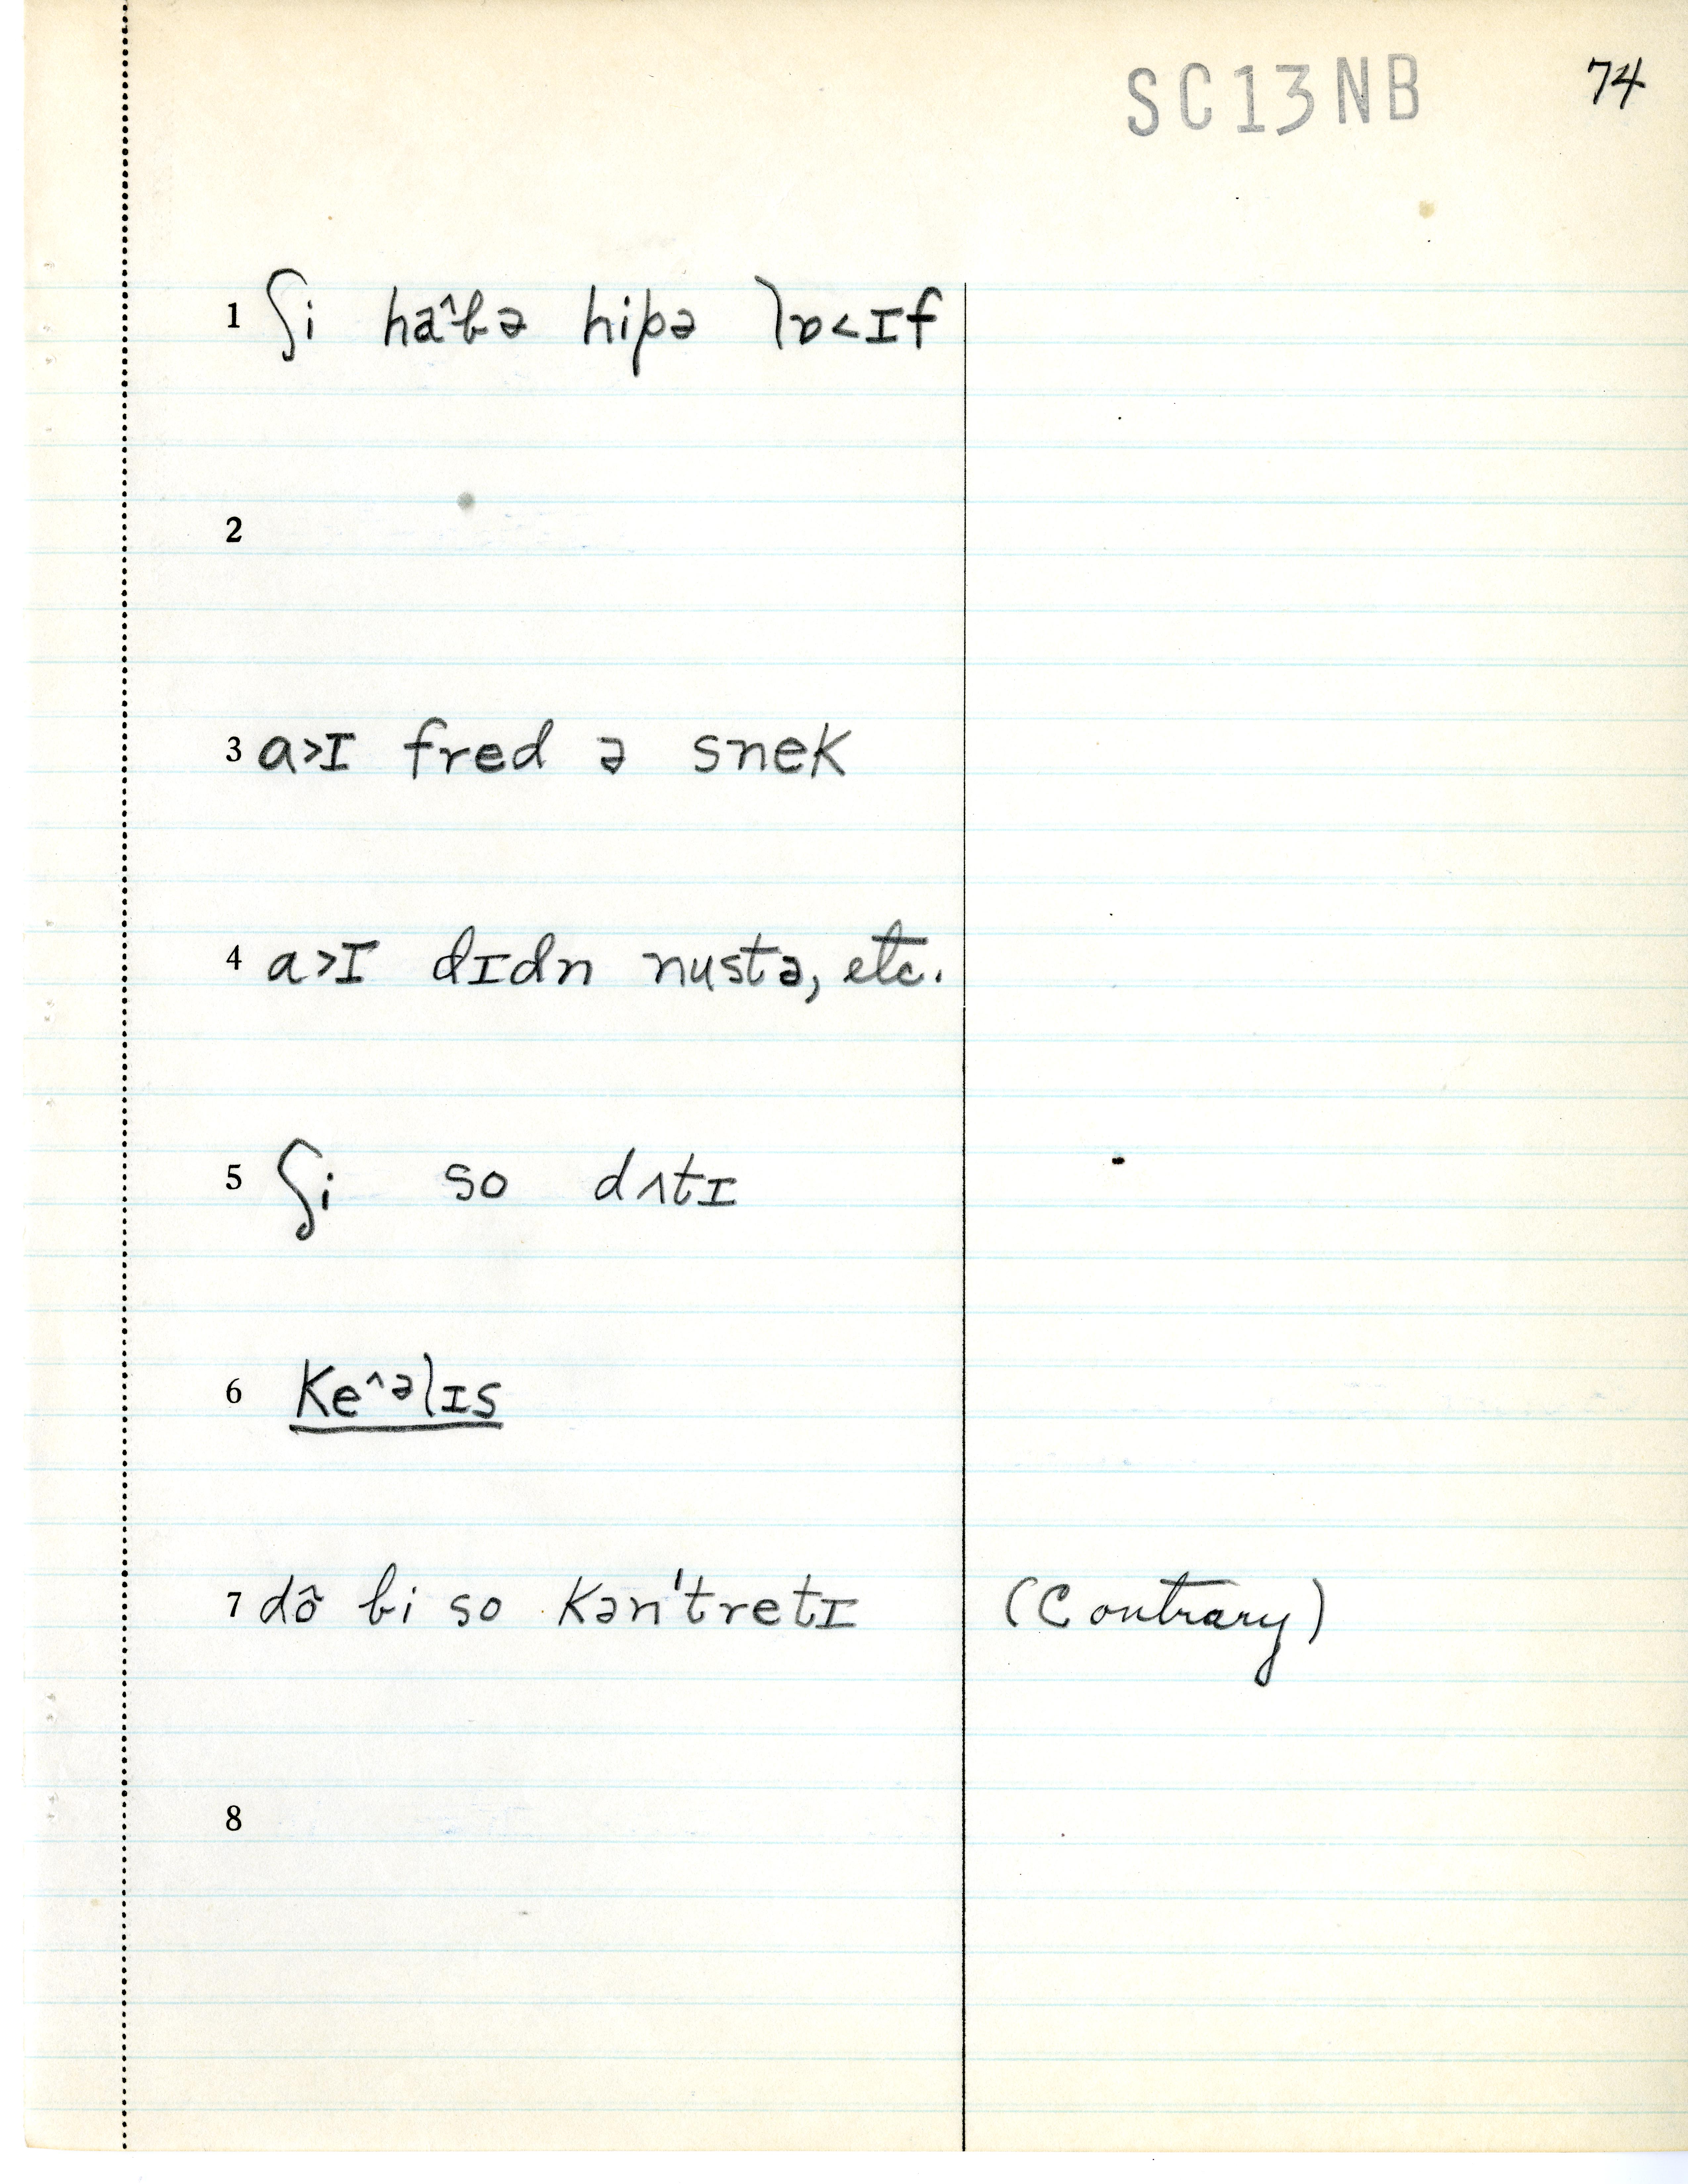 SC13NB 74
1 ʃi ha^bə hipə lɒ<ɪf
2
3 a>ɪ fred ə snek
4 a>ɪ dɪdn nustə, etc.
5 ʃi so dʌtɪ
6 ke^əlɪs
7 dô bi so kən'tretɪ (Contrary)
8